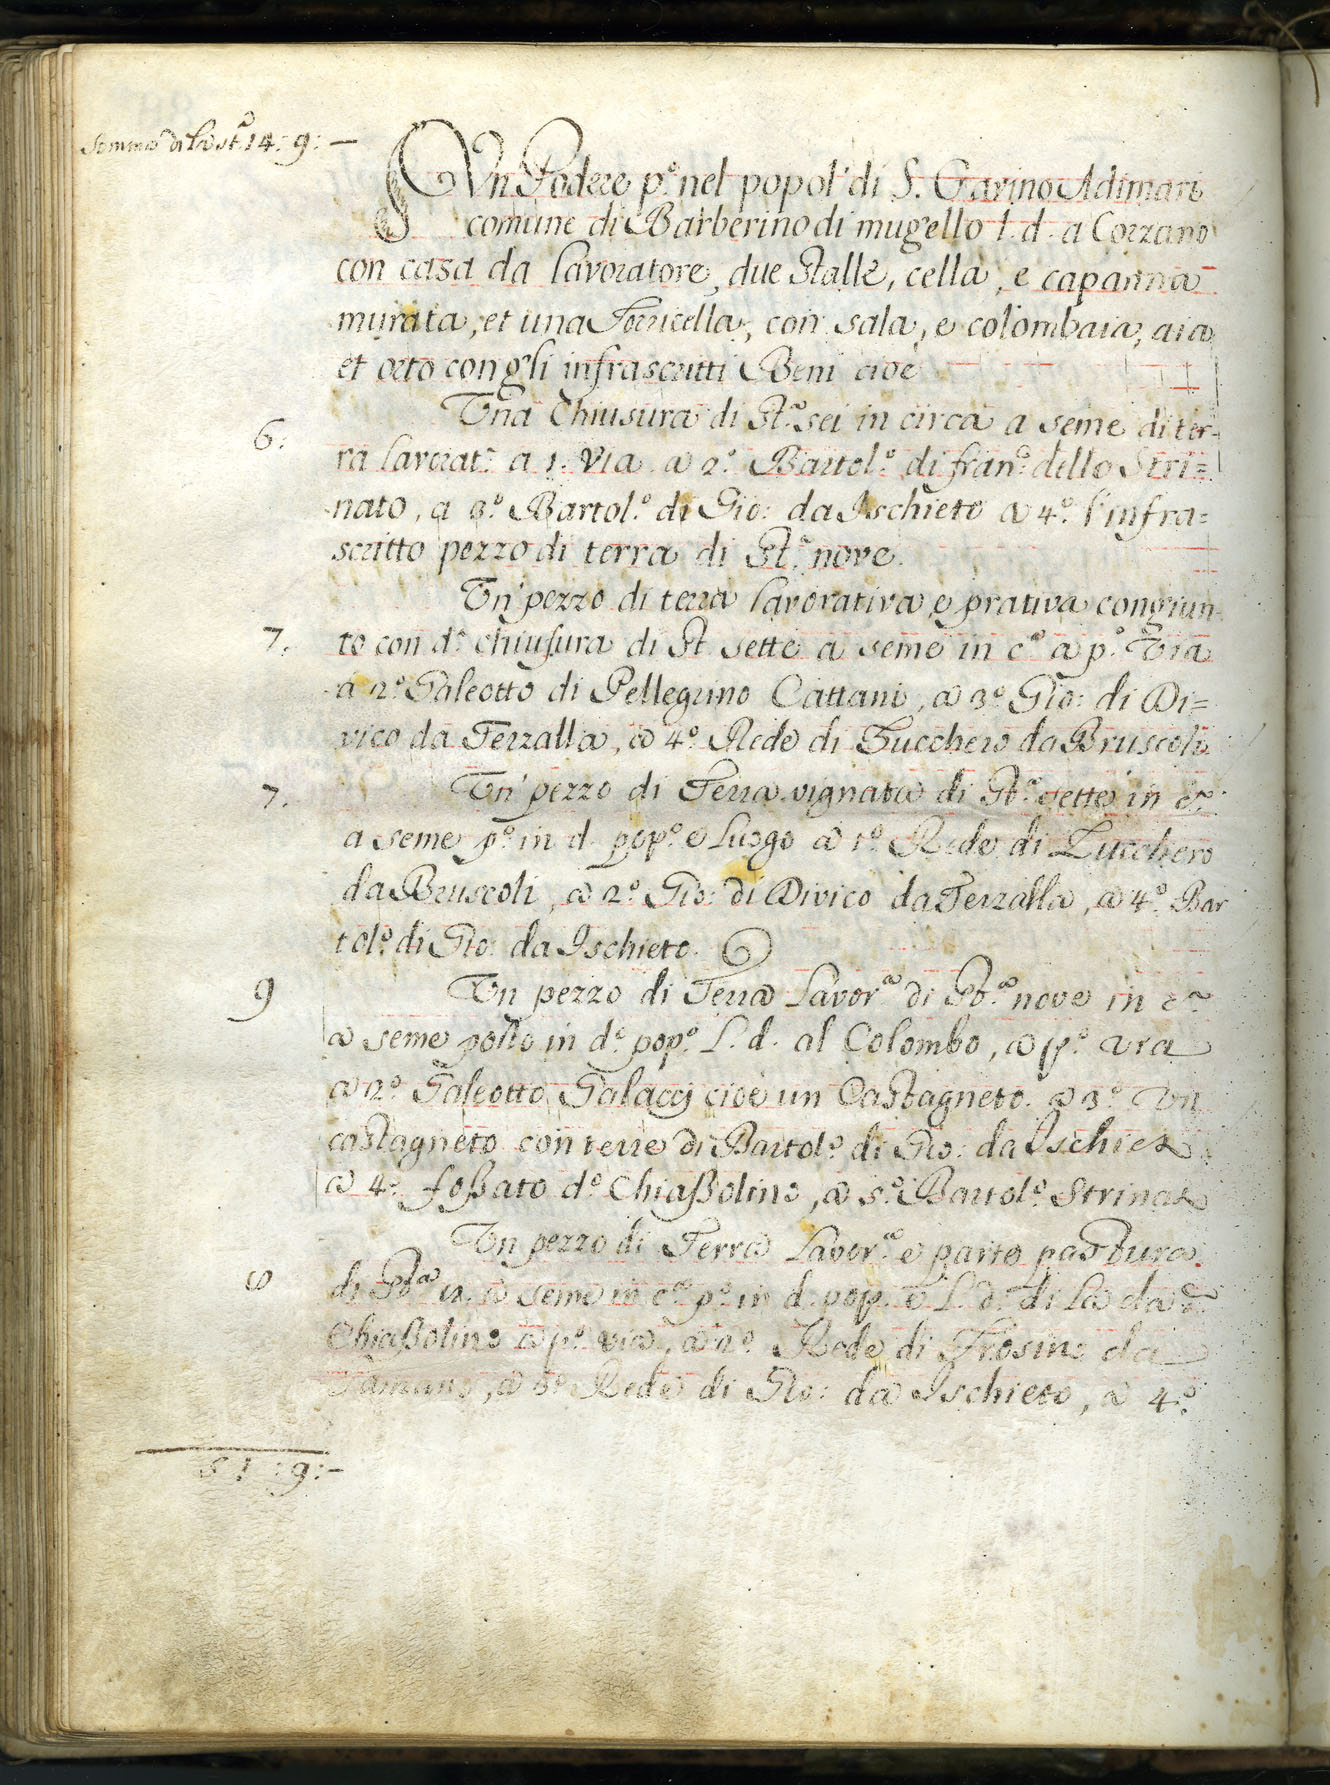 Somma di la st.ᵃ 14: 9: –
Un Podere p.º nel popol' di S. Gavino Adimari
comune di Barberino di mugello l. d. a Corzano
con casa da lavoratore, due stalle, cella, e capanna
murata, et una Torricella, con sala, e colombaia, aia
et orto con gli infrascritti Beni cioè
6. Una Chiusura di St.ª sei in circa a seme di ter-
ra lavorat.ª a 1. Via a 2.º Bartol.º di fran.º dello Stri=
nato, a 3.º Bartol.º di Gio: da Ischieto a 4.º l'infra=
scritto pezzo di terra di St.ª nove.
Un' pezzo di terra lavorativa e prativa congiun-
7. to con d.ª chiusura di St. sette a seme in c.ª a p.º Via
a 2.º Galeotto di Pellegrino Cattani, a 3.º Gio: di Di=
vico da Terzalla, a 4.º Rede di Zucchero da Bruscoli
7. Un' pezzo di Terra vignata di St.ª sette in c.ª
a seme p.º in d. pop.º e luogo a 1.º Rede di Zucchero
da Bruscoli, a 2.º Gio: di Divico da Terzalla, a 4.º Bar
tol.º di Gio: da Ischieto.
9 Un pezzo di Terra Lavor.ª di St.ª nove in c.ª
a seme posto in d.º pop.º L. d. al Colombo, a p.º via
a 2.º Galeotto Galacci cioè un Castagneto a 3.º Un
castagneto con terre di Bartol.º di Gio: da Ischieto
a 4.º foßato d.º Chiaßolino, a 5.º Bartol.º Strinati
Un pezzo di Terra Lavor.ª e parte pastura
di St.ª a seme in c.ª p.º in d. pop. e L. d. di la da
Chiaßolino a p.º via, a 2.º Rede di Frosino da
a 3.º Rede di Gio: da Ischieto, a 4.º
51 : 9: –